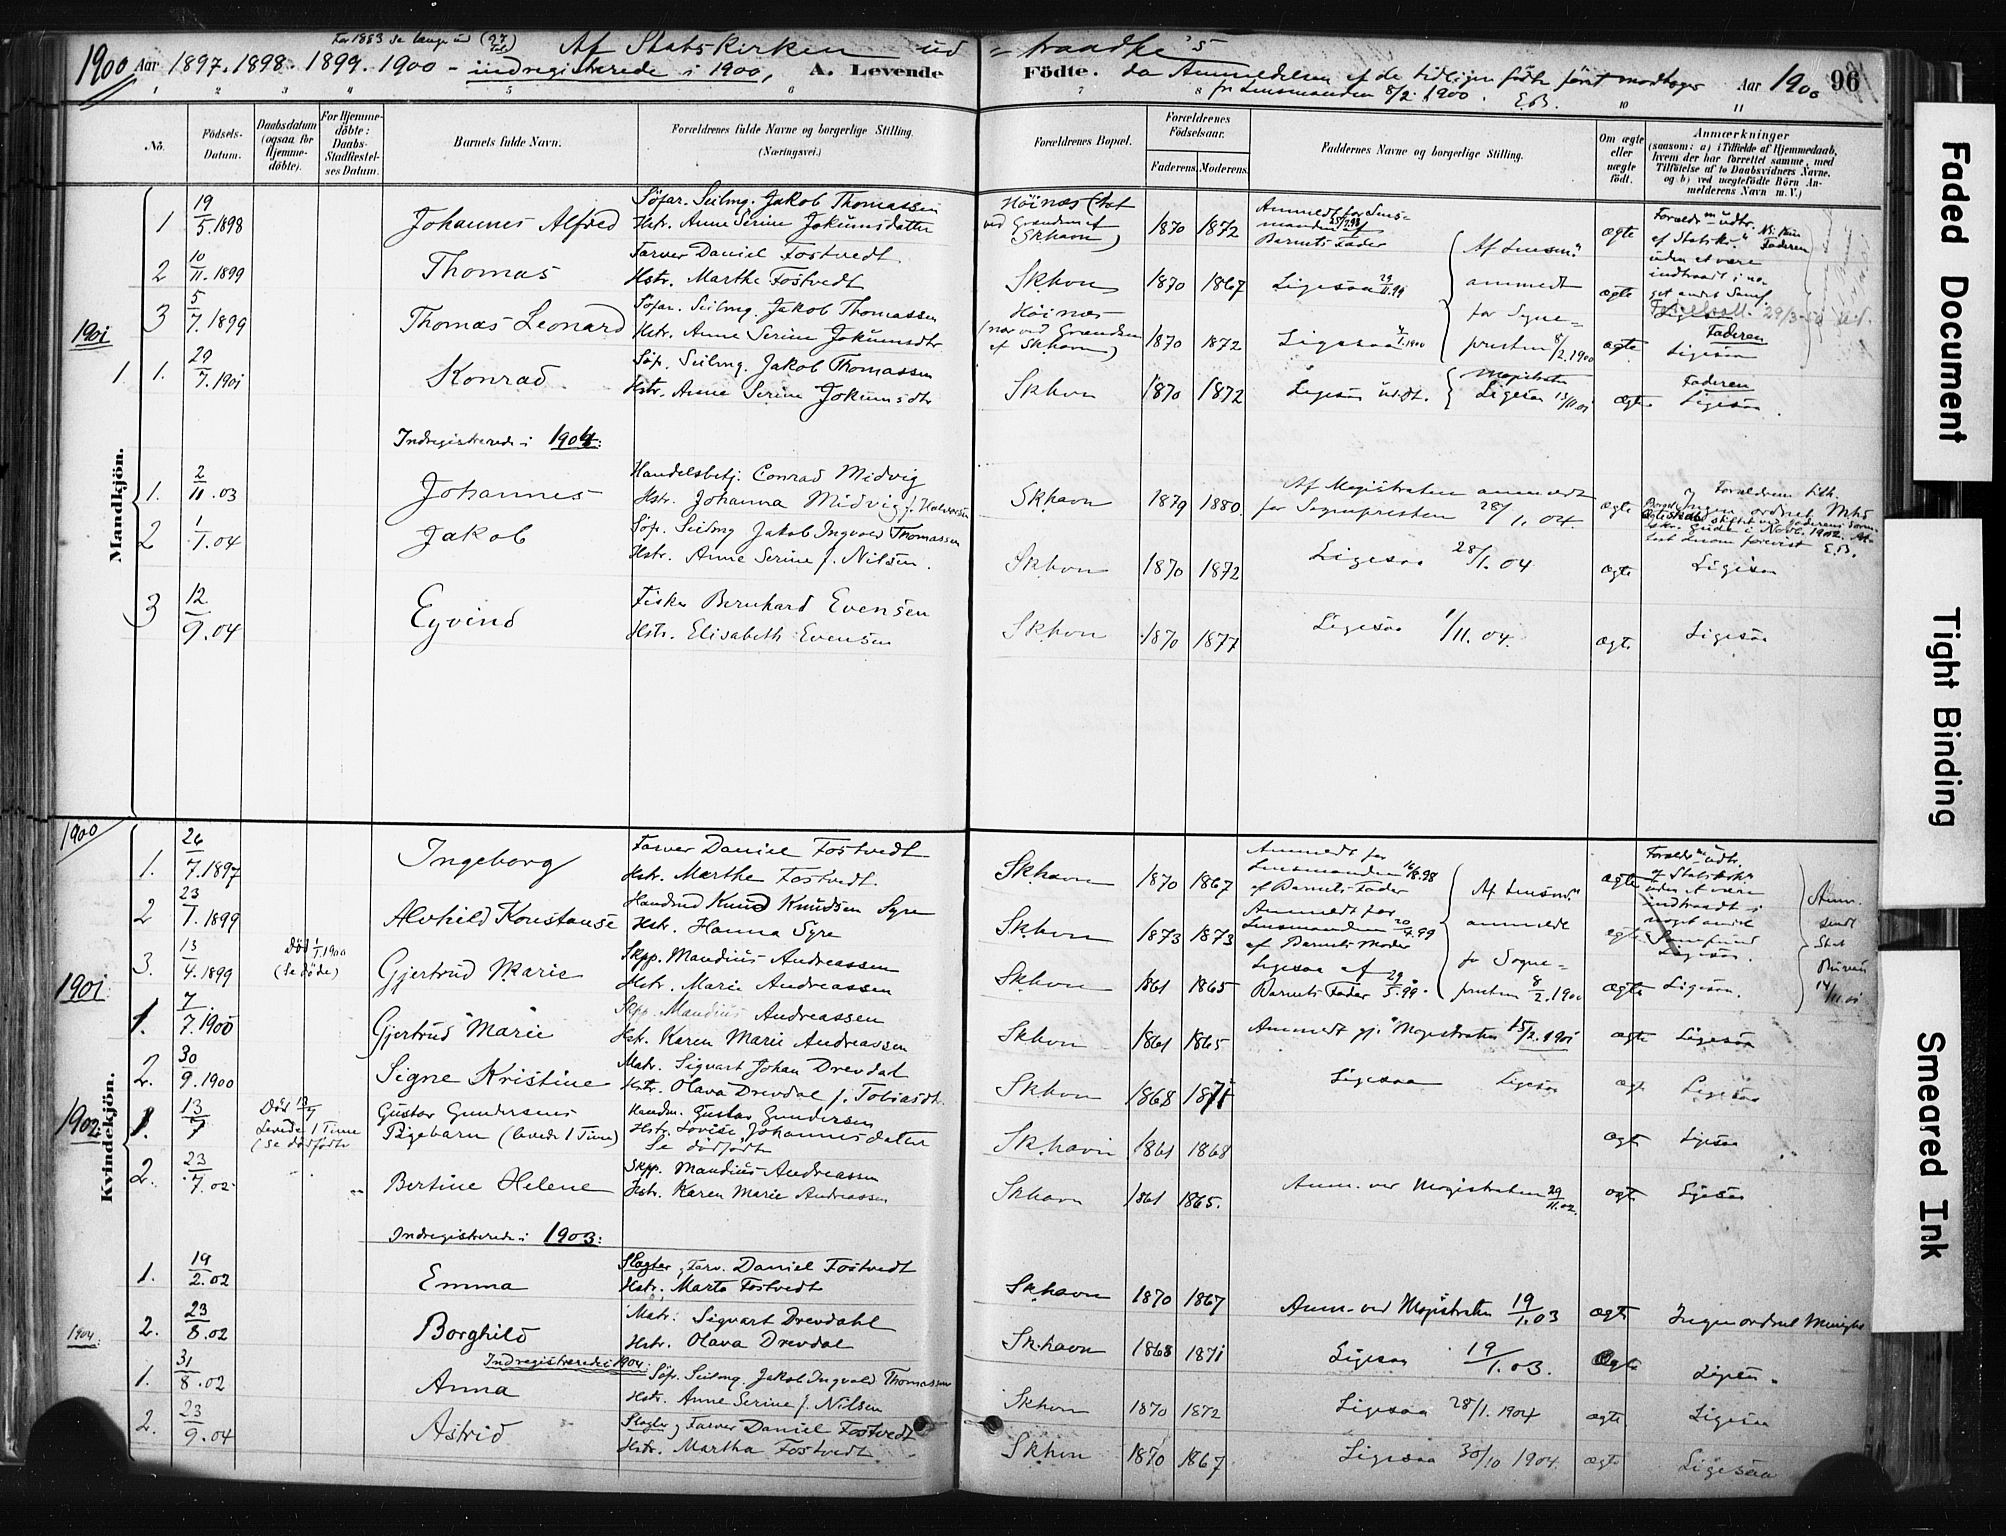 For 1883 se længe ud
1900 Aar 1897. 1898. 1899. 1900 - indregistrerede i 1900,
Af Statskirken ud = traadte's
A. Levende Födte.
da Anmeldelsen af de tidligere födte först modtoges
fra Lensmanden 8/2 1900. E.B.
Aar 1900 96
1 2 3 4 5 6 7 8 10 11
No. Födsels-Datum. Daabsdatum (ogsaa for Hjemmedöbte). For Hjemmedöbte: Daabs-Stadfæstelses Datum. Barnets fulde Navn. Forældrenes fulde Navne og borgerlige Stilling. (Næringsvei.) Forældrenes Bopæl. Forældrenes Födselsaar. Faderens. Moderens. Faddernes Navne og borgerlige Stilling. Om ægte eller uægte födt. Anmærkninger (saasom: a) i Tilfælde af Hjemmedaab, hvem der har forrettet samme, med Tilföielse af to Daabsvidners Navne, og b) ved uægtefödte Börn Anmelderens Navn m. V.)
Mandkjön.
1 19/5 1898 Johannes Alfred Söfar. Seilmg. Jakob Thomassen
Hstr. Anne Serine Jokumsdatter Höinæs ved Grændsen af Skhavn) 1870 1872 Anmeldt for Lensmanden af Barnets Fader ægte Forældrne udtr. af Statsk. uden at være indtraadt i noget andet Samf.
2 10/11 1899 Thomas Farver Daniel Fostvedt
Hstr. Marthe Fostvedt Skhvn 1870 1867 Ligesaa 29/11 99 ægte Ligesaa
Af Lensm. anmeldt for Sognepresten 8/2 1900
3 5/7 1899 Thomas Leonard Söfar. Seilmg. Jakob Thomassen
Hstr. Anne Serine Jokumsdtr Höinæs (nær ved Grændsen af Skhavn) 1870 1872 Ligesaa 1900 ægte Faderen Ligesaa
1901
1 1. 29/7 1901 Konrad Söf. Seilmg. Jakob Thomassen
Hstr. Anne Serine Jokumsdtr Skhvn 1870 1872 Ligesaa Magistraten Ligesaa 13/11 01 ægte Faderen Ligesaa.
Indregistrerede i 1904:
1. 2/11 03 Johannes Handelsbetj. Conrad Midvig
Hstr. Johanna Midvig f. Halvorsen Skhavn 1879 1880 Af Magistraten anmeldt
for Sognepresten 28/1. 04 ægte
2 1/1 04 Jakob Söf. Seilmg Jakob Ingvald Thomassen
Hstr. Anne Serine f. Nilsen. Skhvn 1870 1872 Ligesaa 28/1. 04 ægte Ligesaa
3 12/9. 04 Eyvind Fisker Bernhard Evensen
Hstr. Elisabeth Evensen Skhvn 1870 1877 Ligesaa 1/11. 04. ægte Ligesaa
Kvindekjön.
1900
1. 26/7 1897 Ingeborg Farver Daniel Fostvedt
Hstr. Marthe Fostvedt. Skhavn 1870 1867 Anmeldt for Lensmanden 16/8 98 af Barnets Fader ægte Forældrne udtr. af Statsk. uden at være indtraadt i noget andet Samfund
2 23/1. 1899 Alvhild Konstanse Handmd Knud Knudsen Syre
Hstr. Hanna Syre Skhvn 1873 1873 Anmeldt for Lensmanden 20/4 99 af Barnets Moder ægte Ligesaa.
Af Lensm. anmeldte for Sognepresten 8/2. 1900
Anm. sendt Stat. Bureau 14/11 01
3. 13/4. 1899 Död 1/1 1900 (Se döde) Gjertrud Marie Skpp. Mandius Andreassen
Hstr. Marie Andreassen Skhvn 1861 1865 Ligesaa af Barnets Fader 29/5. 99. ægte Ligesaa.
1901
1. 7/7. 1900 Gjertrud Marie Skpp. Mandius Andreassen
Hstr. Karen Marie Andreassen Skhvn 1861 1865 Anmeldt gj. Magistraten 15/2. 1901 ægte Ligesaa
2. 30/9. 1900 Signe Kristine Matr. Sigvart Johan Drevdal
Hstr. Olava Drevdal f. Tobiasdt. Skhvn 1868 1871 Ligesaa Ligesaa ægt Ligesaa
1902:
1. 13/7 Död 13/7 Levede 1 Time (Se dödfödte Gustav Gundersens Pigebarn (levede 1 Time) Handm. Gustav Gundersen
Hstr. Lovise Johannesdatter
Se dödfödte Skhavn 1861 1868 ægte Ligesaa
2. 23/7. 02 Bertine Helene Skpp. Mandius Andreassen
Hstr. Karen Marie Andreassen Skhavn 1861 1865. Anm. ved Magistraten 29/11. 02. ægte Ligesaa
Indregistrerede i 1903:
1. 19/2. 02 Emma Slagter, Farv. Daniel Fostvedt
Hstr. Marta Fostvedt Skhavn 1870 1867 Anm. ved Magistraten 19/1. 03 ægte Ingen ordnet Menighed
2. 23/8. 02 Borghild Matr. Sigvart Drevdahl
Hstr. Olava Drevdal Skhavn 1868 1871 Ligesaa 19/1. 03. ægte Ligesaa
1904: Indregistrerede i 1904:
1. 31/8. 02 Anna Söf. Seilmg. Jakob Ingvald Thomassen
Hstr. Anne Serine f. Nilsen Skhvn 1870 1872 Ligesaa 28/1. 1904 ægte Ligesaa
2. 23/9. 04 Astrid Slagter, Farver Daniel Fostvedt
Hstr. Martha Fostvedt. Skhvn 1870 1867 Ligesaa 30/10 1904. ægte Ligesaa
Faded Document
Tight Binding
Smeared Ink